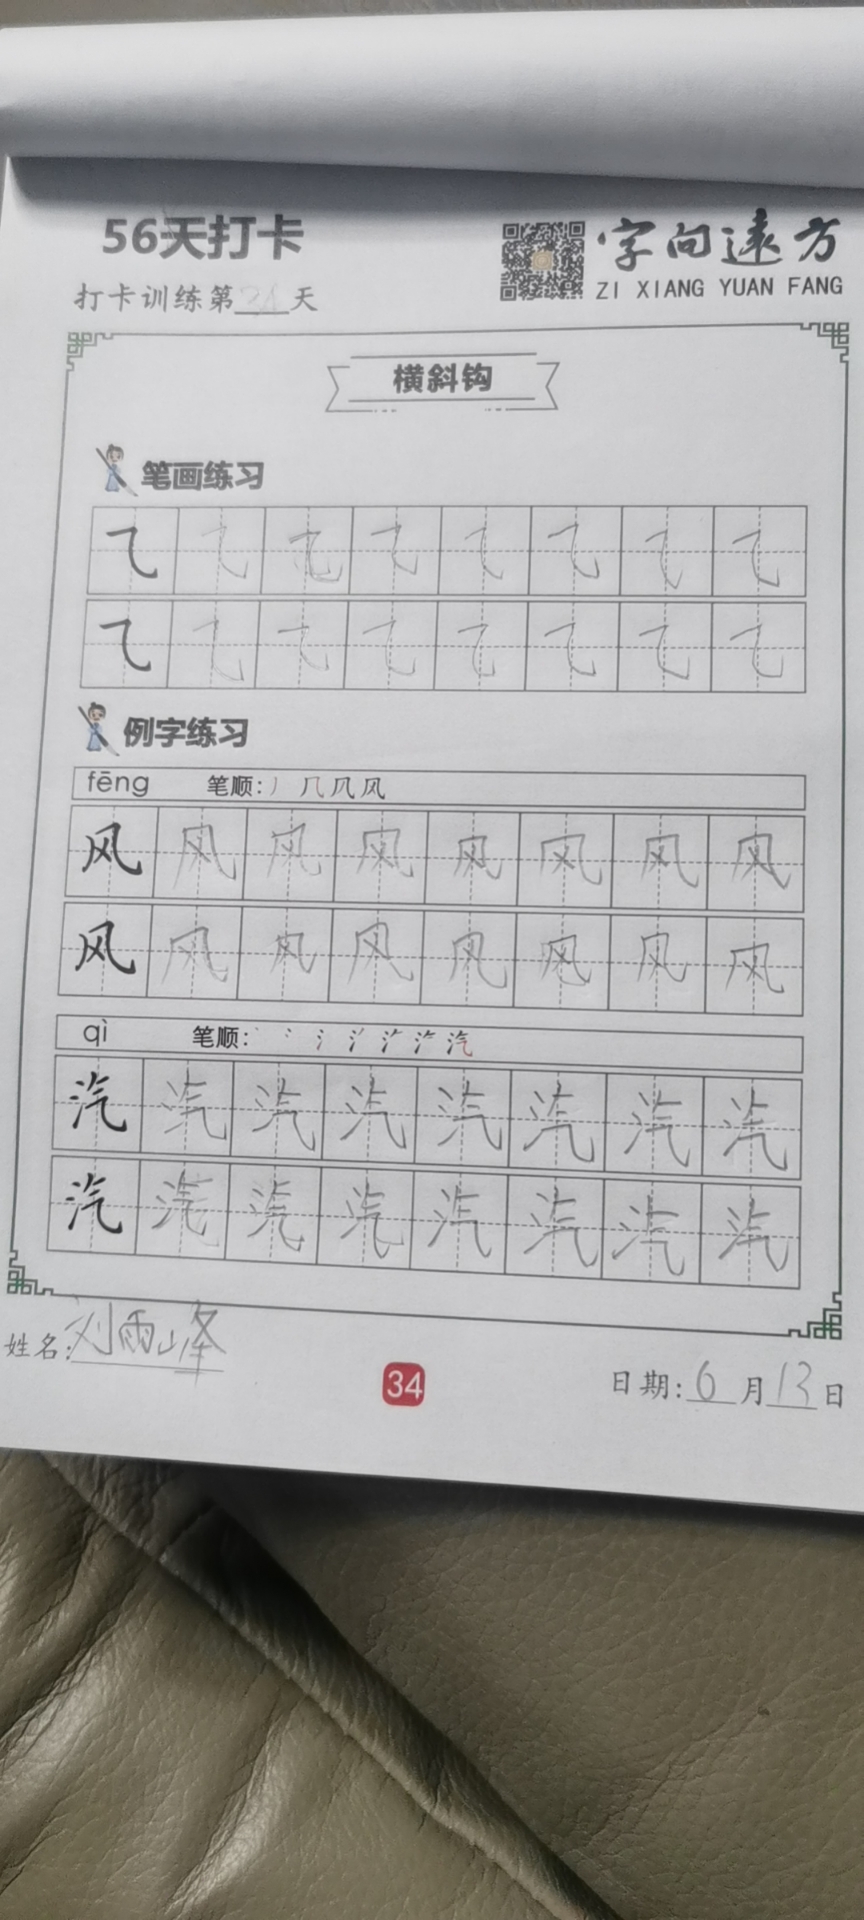 56天打卡
字向远方
ZI XIANG YUAN FANG
打卡训练第34天
横斜钩
笔画练习
㇈ ㇈ ㇈ ㇈ ㇈ ㇈ ㇈ ㇈
㇈ ㇈ ㇈ ㇈ ㇈ ㇈ ㇈ ㇈
例字练习
fēng 笔顺: 丿 几 凡 风
风 风 风 风 风 风 风 风
风 风 风 风 风 风 风 风
qì 笔顺: 汽
汽 汽 汽 汽 汽 汽 汽 汽
汽 汽 汽 汽 汽 汽 汽 汽
姓名:刘雨峰
34
日期:6月13日